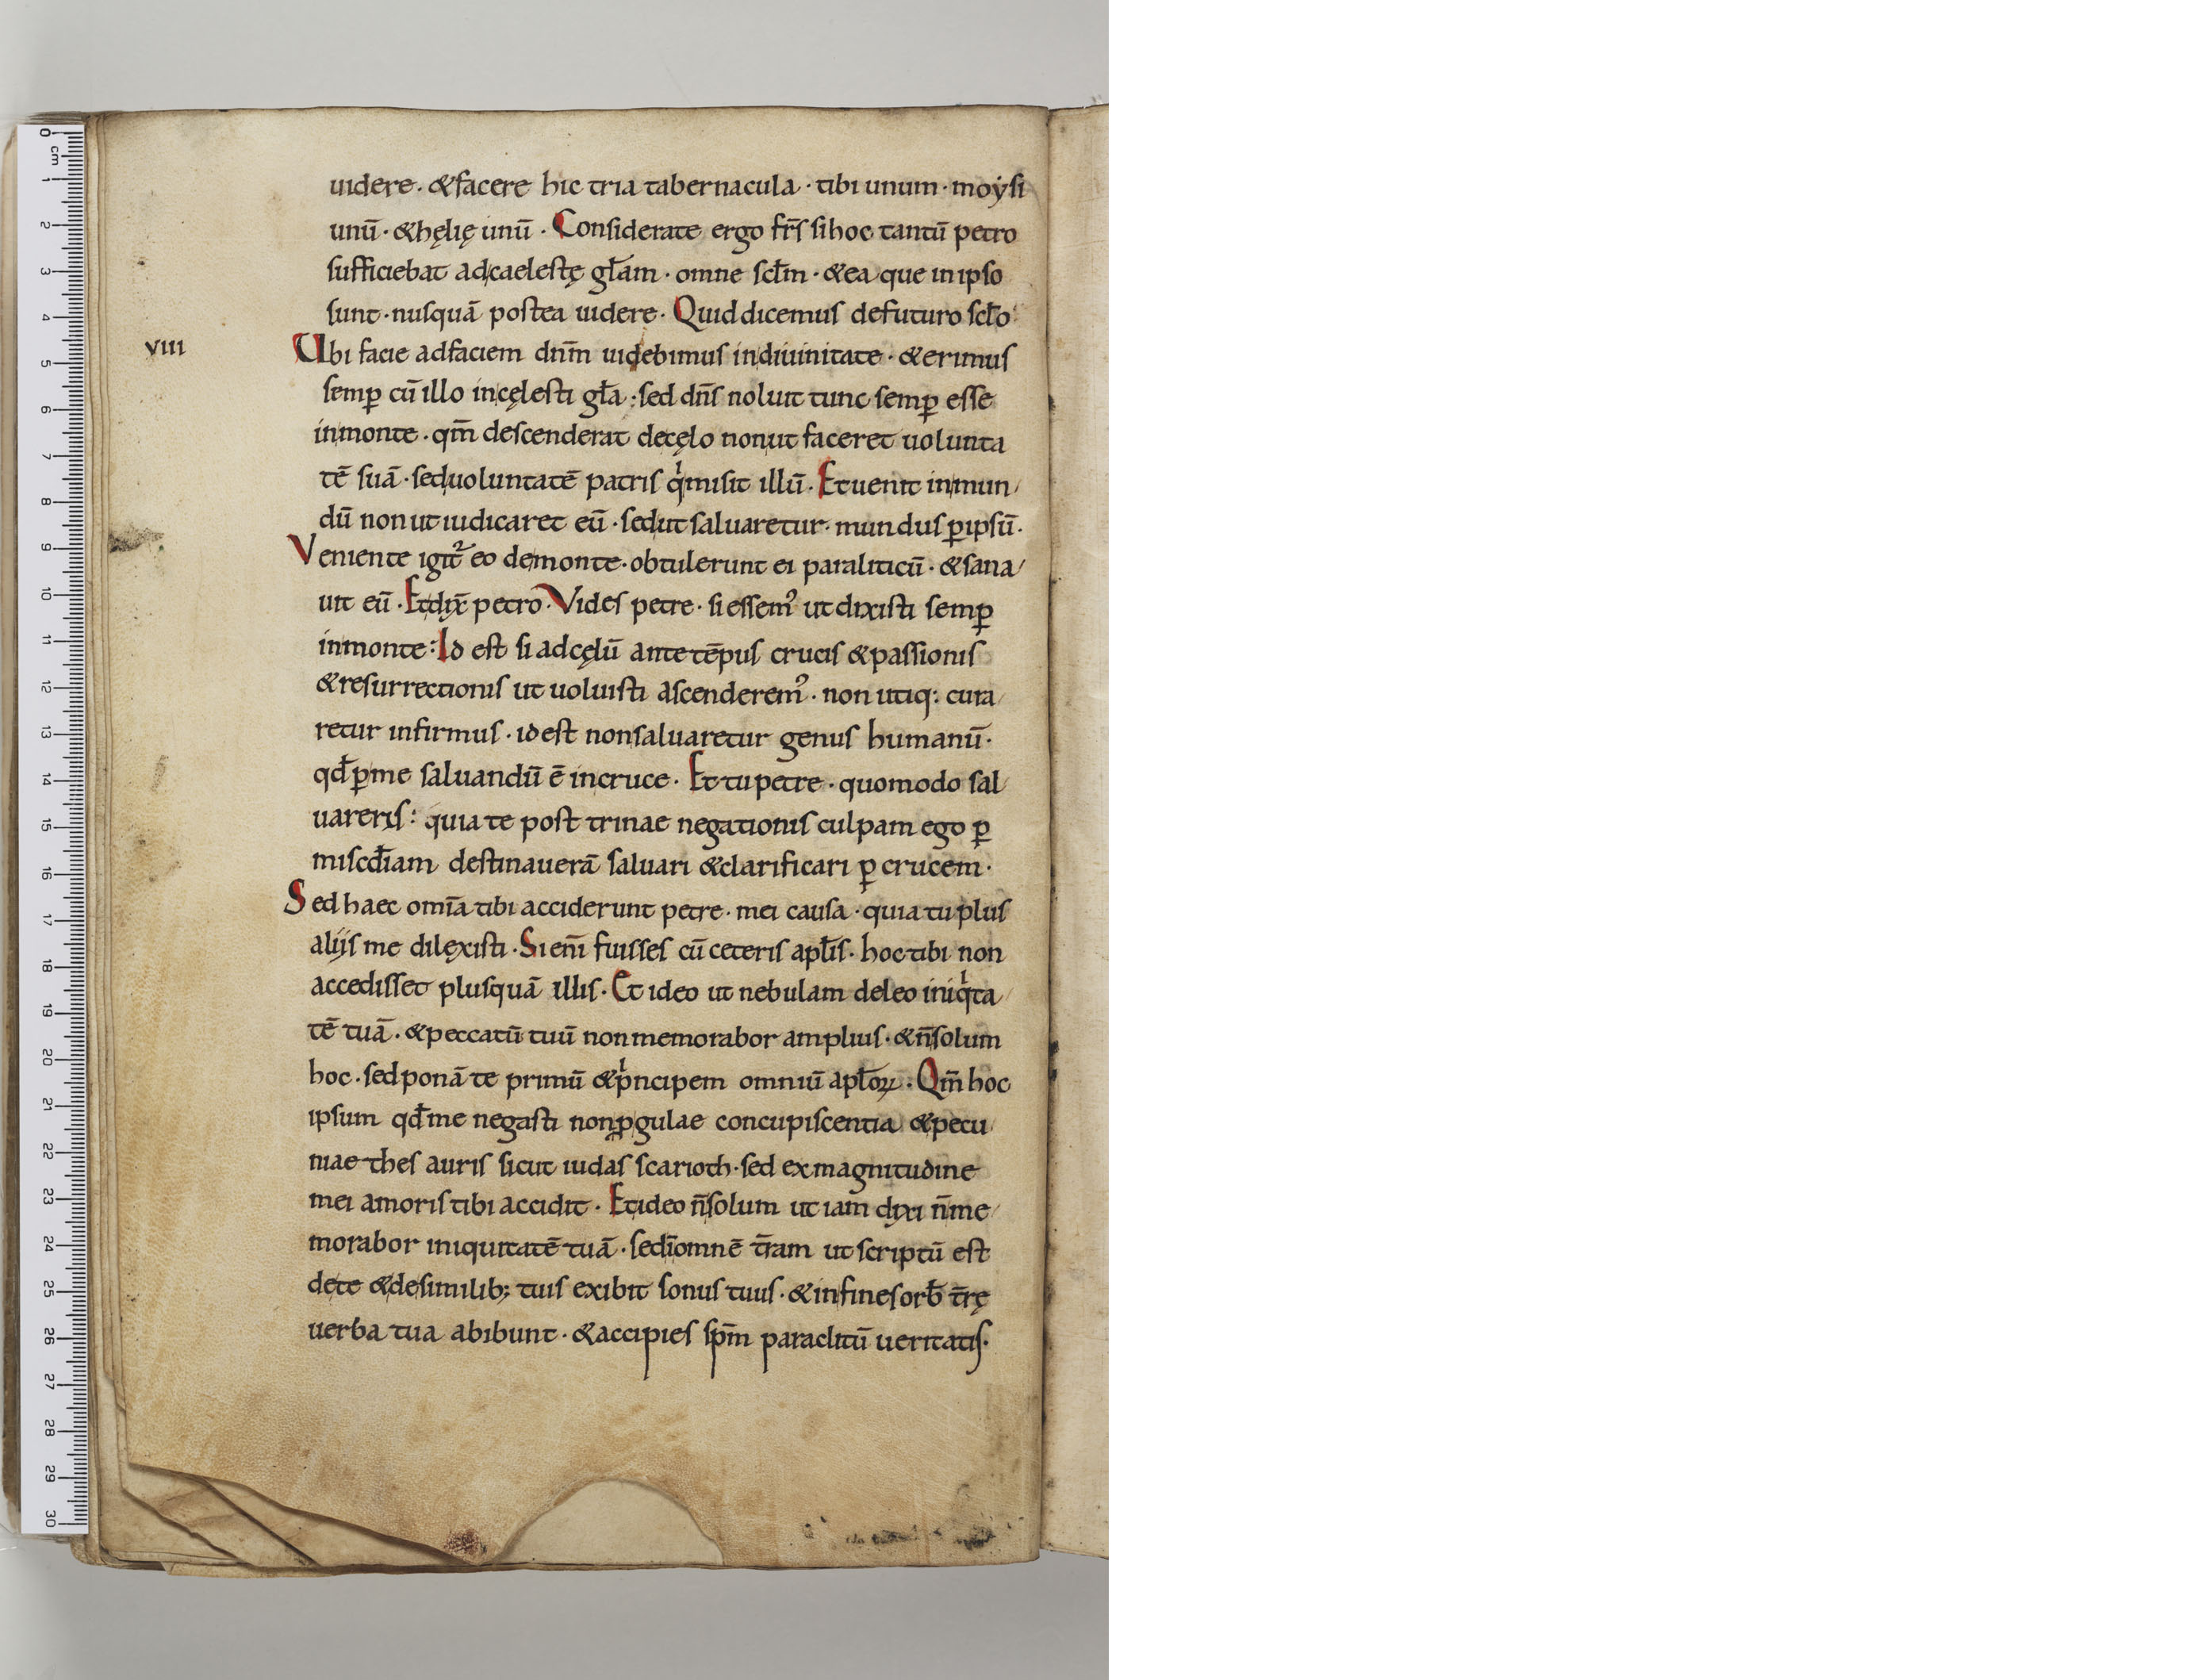 uidere · &facere hic tria tabernacula · tibi unum · moẏsi
unū · &hęlię unū · Considerate ergo fr̄s sihoc tantū petro
sufficiebat adcaelestę gl̄am · omne scl̄m · &ea que inipso
sunt · nusquā postea uidere · Quid dicemus defuturo scl̄o
VIII
Ubi facie adfaciem dnm̄ uidebimus indiuinitate · &erimus
semꝑ cū illo incęlesti gl̄a : sed dn̄s noluit tunc semꝑ esse
inmonte · qm̄ descenderat decęlo nonut faceret uolunta
tē suā · seduoluntatē patris qͥmisit illū · Etuenit inmun
dū non ut iudicaret eū · sedut saluaretur · mundus ꝑipsū ·
Veniente igit̄² eo demonte · obtulerunt ei paraliticū · &sana
uit eū · Etdix̄ petro · Vides petre · si essem᾿ ut dixisti semꝑ
inmonte : Id est si adcęlū ante tēpus crucis &passionis
&resurrectionis ut uoluisti ascenderem᾿ · non utiq: cura
retur infirmus · id est nonsaluaretur genus humanū ·
qd̄ ꝑme saluandū ē incruce · Et tu petre · quomodo sal
uareris : quia te post trinae negationis culpam ego ꝑ
miscd̄iam destinauerā saluari &clarificari ꝑ crucem ·
Sed haec omīa tibi acciderunt petre · mei causa · quia tu plus
alijs me dilexisti · Si enī fuisses cū ceteris apl̄is · hoc tibi non
accedisset plusquā illis · Et ideo ut nebulam deleo iniqͥta
tē tuā · &peccatū tuū nonmemorabor amplius · &n̄solum
hoc · sed ponā te primū &pͥncipem omniū apl̄oꝝ · Qm̄ hoc
ipsum qd̄ me negasti non ꝓgulae concupiscentia &pecu
niae thesauris sicut iudas scarioth · sed ex magnitudine
mei amoris tibi accidit · Et ideo n̄solum ut iam dixi n̄me
morabor iniquitatē tuā · sed īomnē t̄ram ut scriptū est
dete &desimilib; tuis exibit sonus tuus · &infines orb̄ t̄rę
uerba tua abibunt · &accipies sp̄m paraclitū ueritatis ·
0 cm 1 2 3 4 5 6 7 8 9 10 11 12 13 14 15 16 17 18 19 20 21 22 23 24 25 26 27 28 29 30